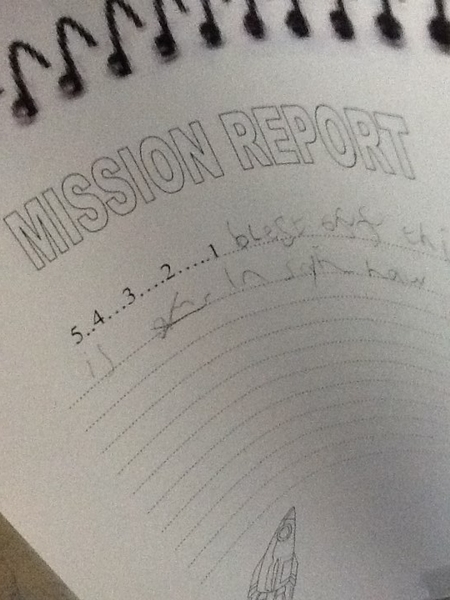 MISSION REPORT
5..4...3....2.....1 blest off thi
is in